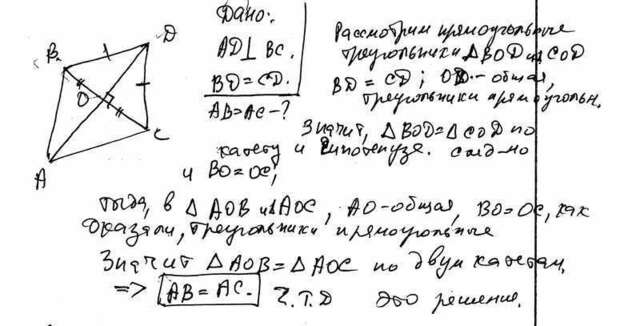 B
D
O
C
A
Дано:
AD⊥BC.
BD=CD.
AB=AC-?
Рассмотрим прямоугольные
треугольники ΔBOD и COD
BD = CD; OD - общая,
треугольники прямоугольн.
Значит, ΔBOD=ΔCOD по
катету и гипотенузе. след-но
и BO=OC,
тогда, в Δ AOB и ΔAOC, AO-общая, BO=OC, как
оказали, треугольники прямоугольные
Значит ΔAOB=ΔAOC по двум катетам.
=> AB=AC. Ч.Т.Д это решение.